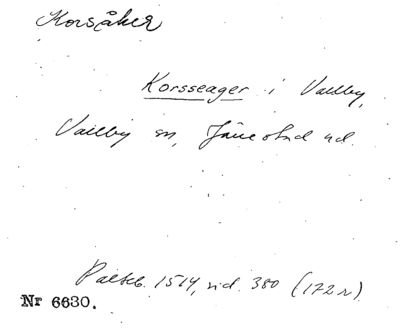 Korsåker
Korsseager i Vallby,
Vallby sn, Järrestad hd.
Palteb. 1514, sid. 380 (172 r)
Nr 6630.